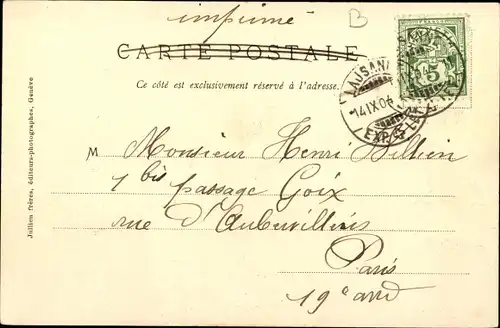 imprimé
B
CARTE POSTALE
Ce côté est exclusivement réservé à l'adresse.
LAUSANNE
14.IX.04
EXP. LET.
5
M Monsieur Henri Billien
1 bis passage Goix
rue d'Aubervilliers
Paris
19e arrd
Jullien frères, éditeurs-photographes, Genève